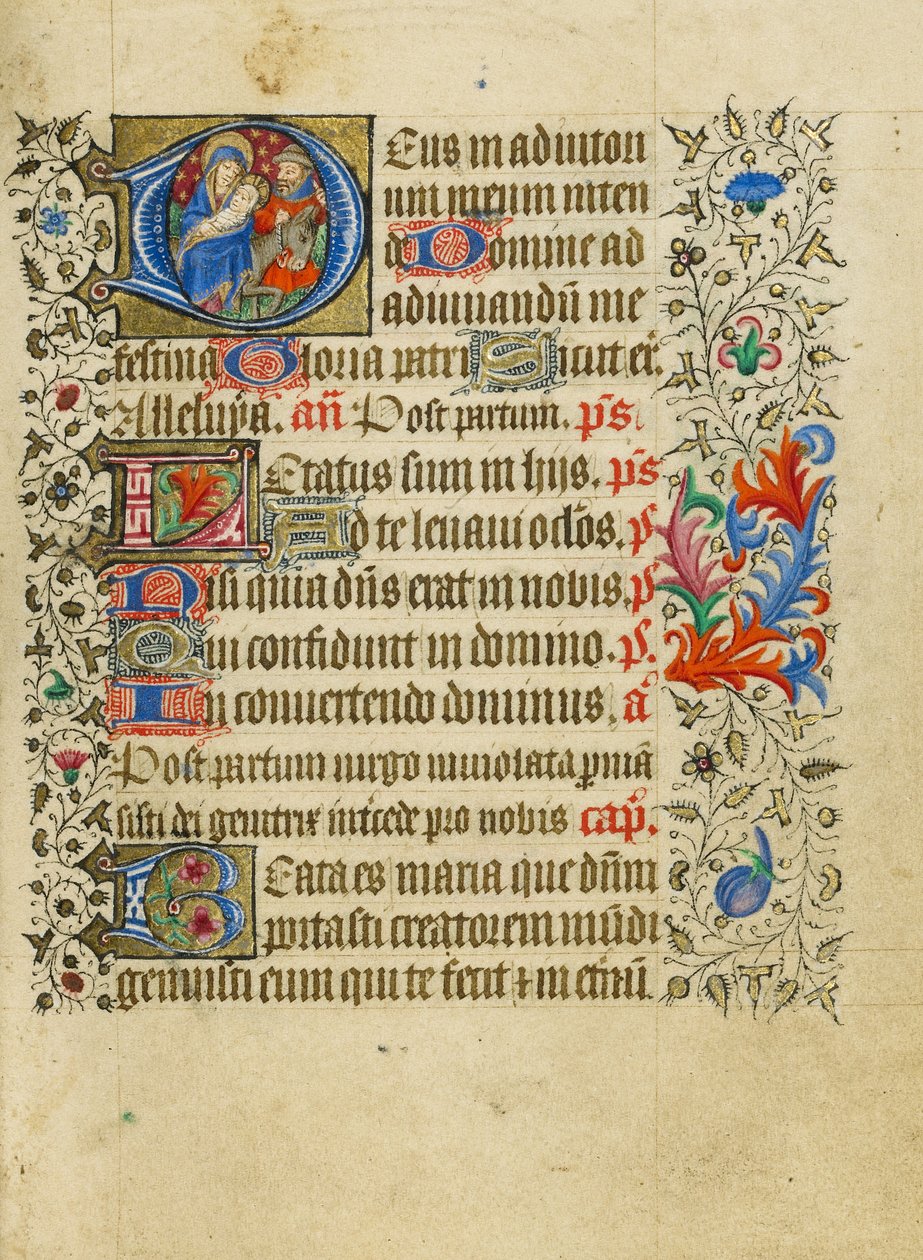 Deus in adiutori
um meum inten
de Domine ad
adiuuandū me
festina Gloria patri Sicut er̄.
Alleluya. añ Post partum. p̄s
Letatus sum in hijs. p̄s
Ad te leuaui oclōs. p̄
Nisi quia dn̄s erat in nobis. p̄
Qui confidunt in domino. p̄.
In conuertendo dominus. a᷒
Post partum uirgo inuiolata ꝑmā
sisti dei genitrix int̄cede pro nobis cap̄.
Beata es maria que dn̄m
portasti creatorem mūdi
genuisti eum qui te fecit ⁊ in et̄nū.